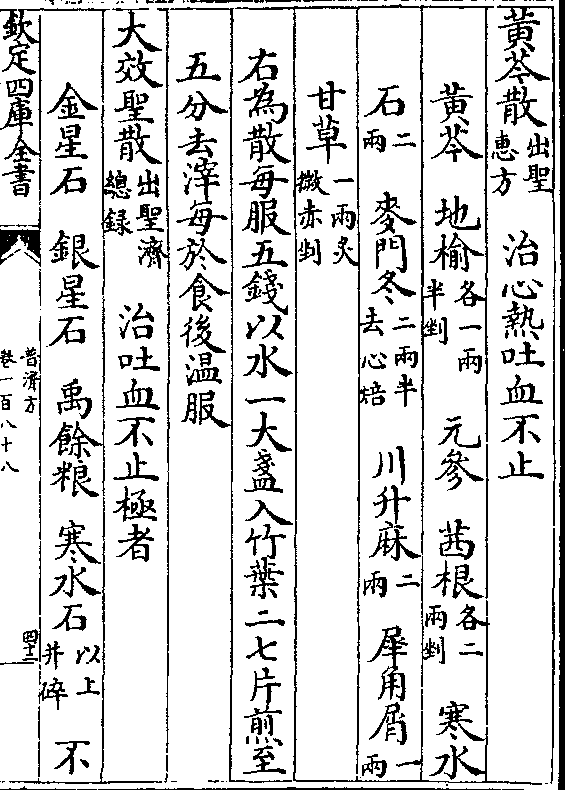 黄芩散出聖惠方　治心熱吐血不止
黄芩　地榆各一兩半剉　元參　茜根各二兩剉　寒水
石二兩　麥門冬二兩半去心焙　川升麻二兩　犀角屑一兩
甘草一兩炙微赤剉
右為散每服五錢以水一大盞入竹葉二七片煎至
五分去滓每於食後温服
大效聖散出聖濟總録　治吐血不止極者
金星石　銀星石　禹餘粮　寒水石以上并碎　不
欽定四庫全書
普濟方
卷一百八十八
四十三